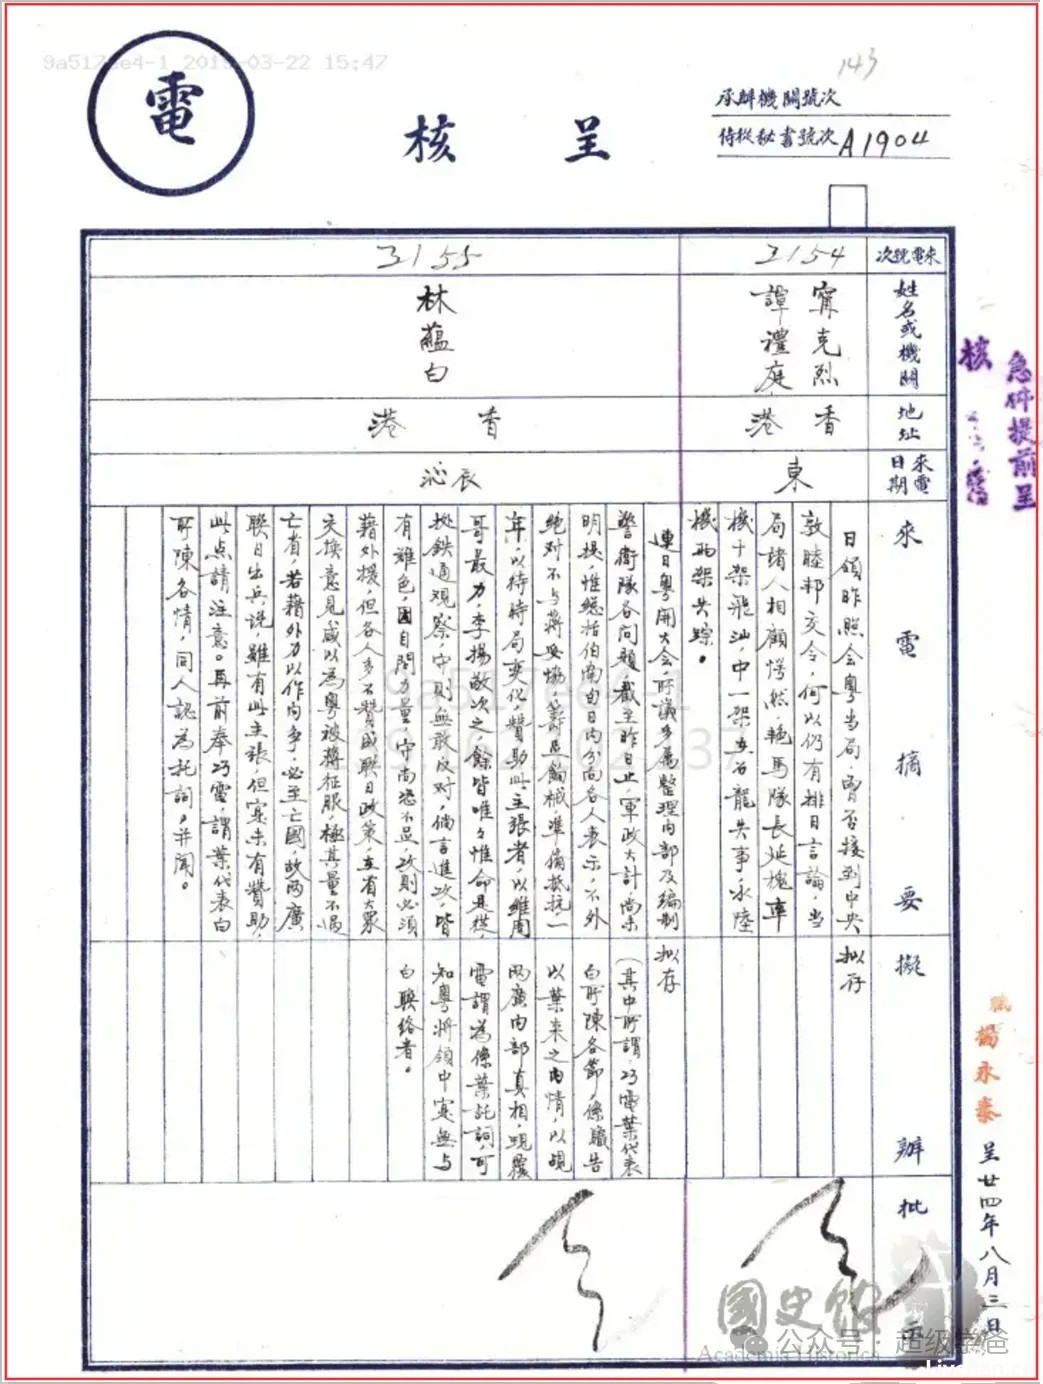 9a517ee4-1 2019-03-22 15:47
143
電
呈核
承辦機關號次
侍從秘書號次 A1904
來電號次
姓名或機關
地址
來電日期
來電摘要
擬辦
批示
3154
甯克烈
譚禮庭
香港
東
日領昨照會粵當局,曾否接到中央
敦睦邦交令,何以仍有排日言論,當
局諸人相顧愕然,艳馬隊長廷槐率
機十架飛汕,中一架在石龍失事,水陸
機两架失踪。
拟存
3155
林蘊白
香港
沁辰
連日粵開大会,所議多属整理內部及编制
警衛隊各问題,截至昨日止,軍政大計,尚未
明提,惟總括伯南由日內分向各人表示,不外
绝对不与蔣妥協,籌足餉械,準備抵抗一
年,以待時局变化,贊助此主張者,以維周
哥最力,李揚敬次之,餘皆唯々惟命是從,
挺鉄通观察,守則無敢反对,倘言進攻,皆
有難色,因自問力量,守尚恐不足,攻則必須
藉外援,但各人多不贊成联日政策,在省大众
交換意見,咸以為粵被蔣征服,極其量不過
亡省,若藉外力以作内争,必至亡國,故两廣
联日出兵说,雖有此主张,但实未有贊助,
此点請注意。再前奉23電,謂葉代表白
所陳各情,同人認為托詞,并聞。
拟存
(其中所謂,23電葉代表
白所陳各節,係職告
以葉来之内情,以覘
两廣内部真相,現覆
電謂為係葉託詞,可
知粵將領中实無与
白联络者。
急碎提前呈
核
職
楊永泰
呈 廿四年八月三日
9a517ee4-1
國史館
Academia Historica
公众号:超级学爸